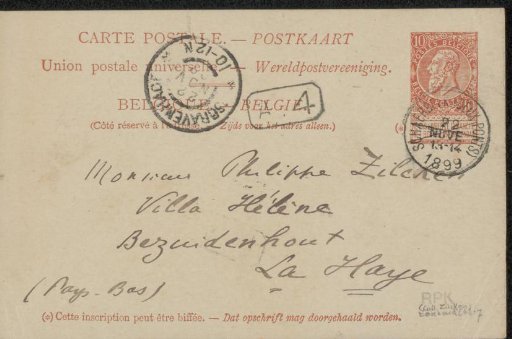 CARTE POSTALE. — POSTKAART
Union postale universelle. — Wereldpostvereeniging.
BELGIQUE — BELGIË
(Côté réservé à l'adresse. — Zijde voor het adres alleen.)
10
'S GRAVENHAGE
10-12N
NOV
4
NOVE
13-14
1899
Monsieur Philippe Zilcken
Villa Hélène
Bezuidenhout
La Haye
(Pays-Bas)
RPK
(*) Cette inscription peut être biffée. — Dat opschrift mag doorgehaald worden.